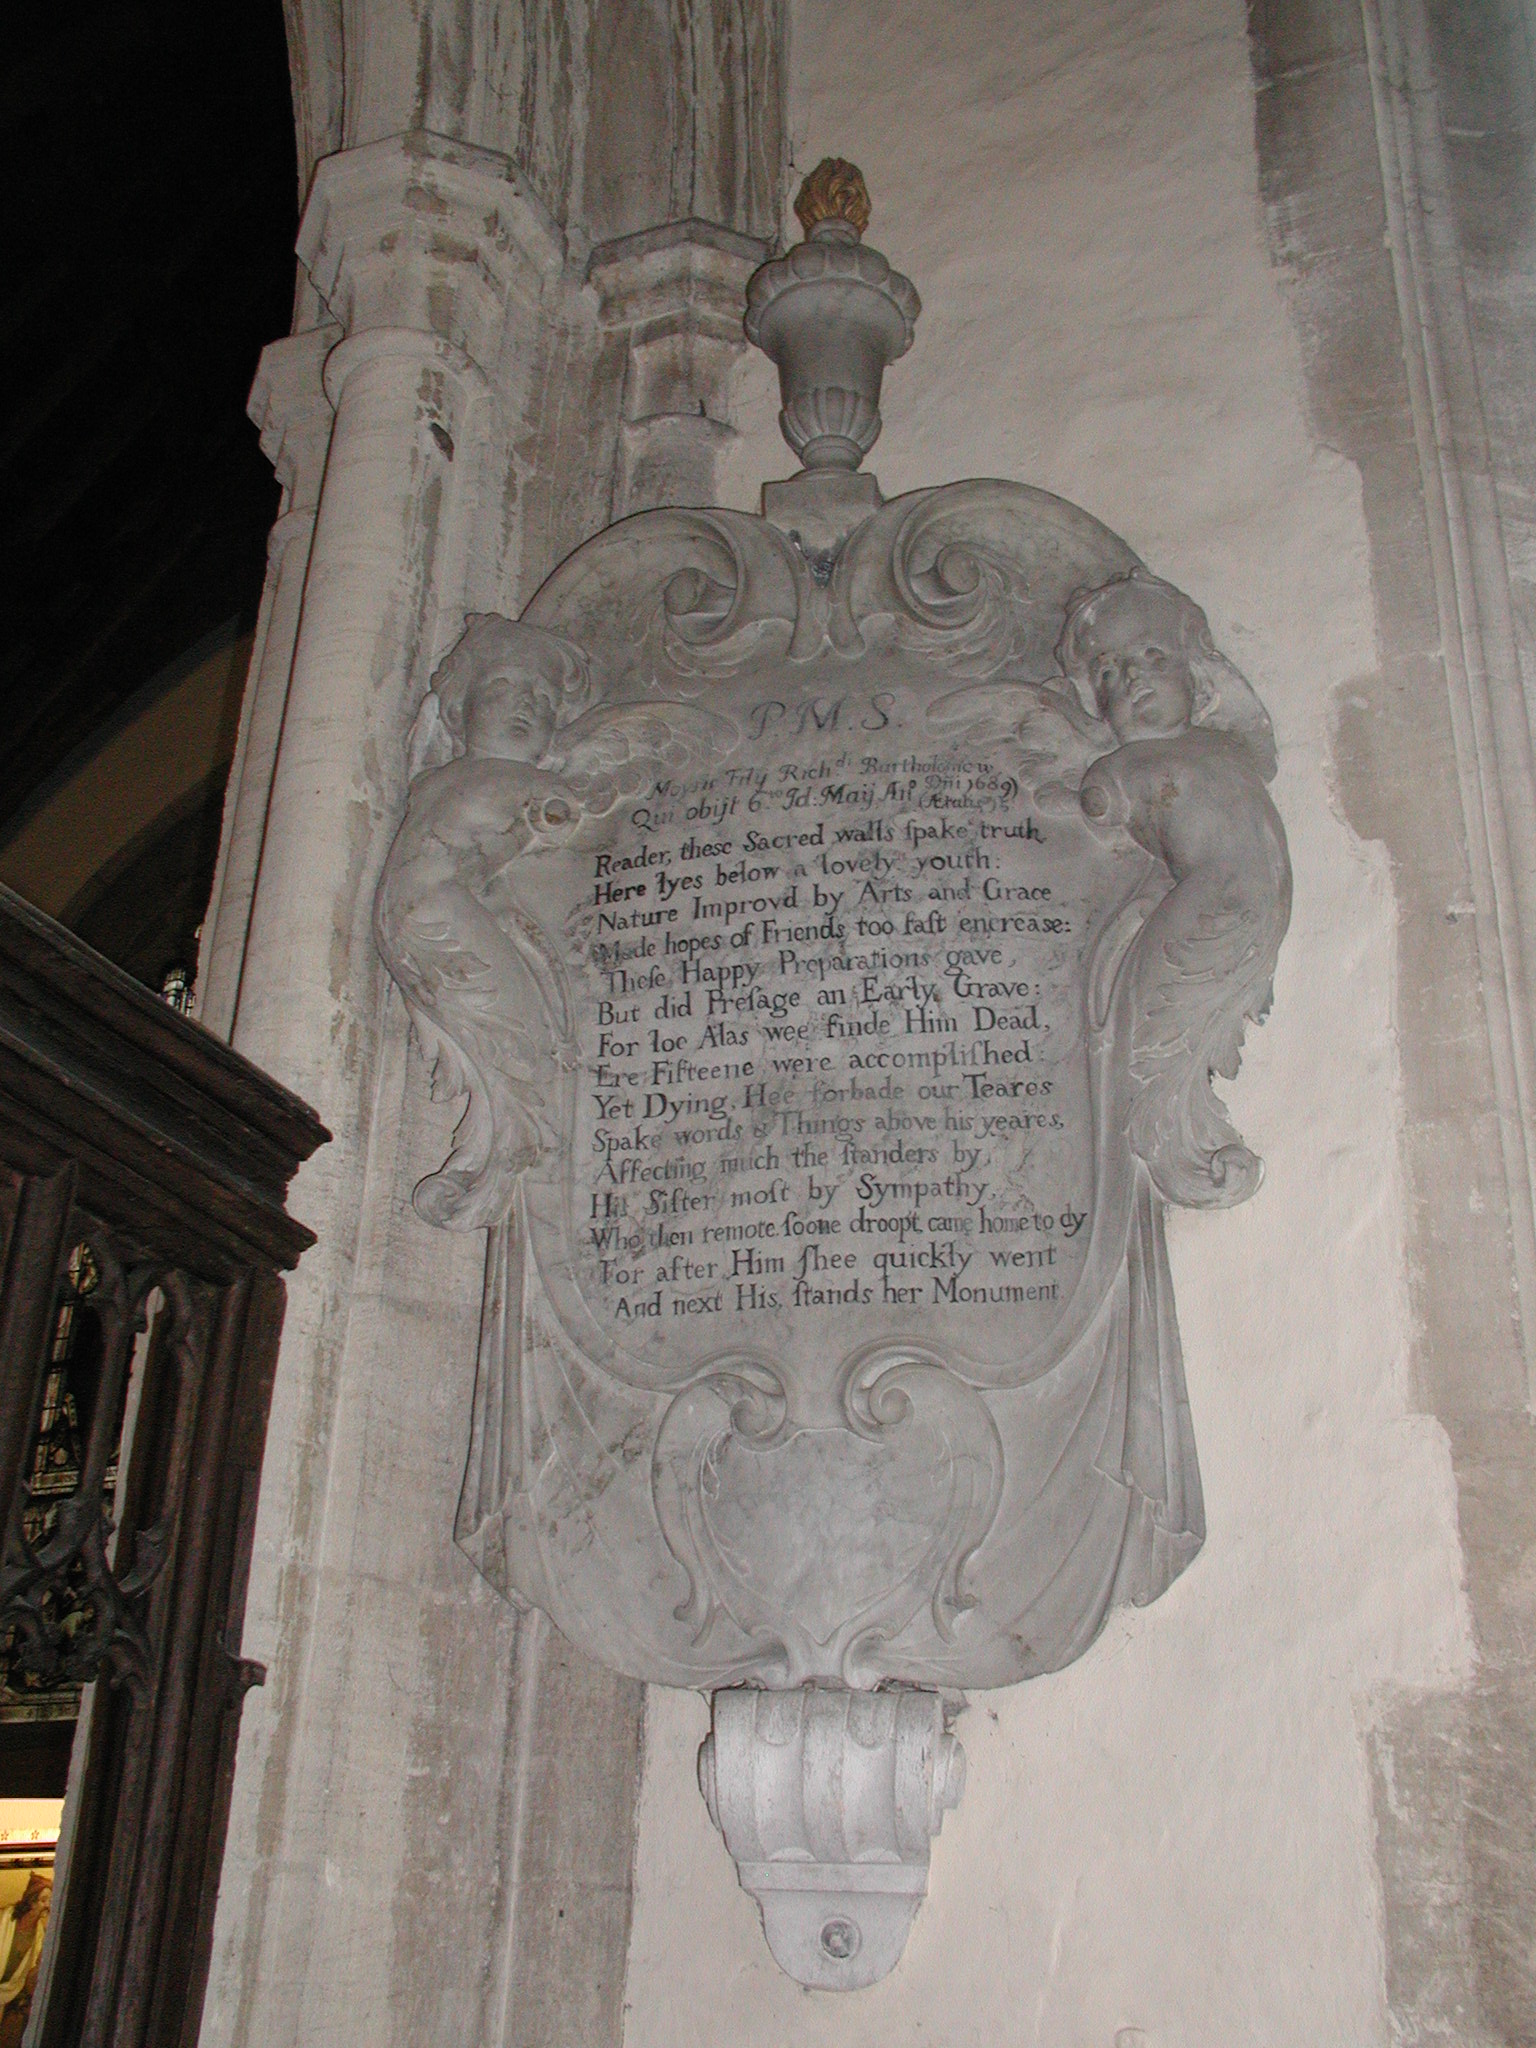 P.M.S.
Moysis Fily Rich.di Bartholomew
Qui obijt 6.to Id: Maij An.o Dni 1689
(Ætatis 15)
Reader, these Sacred walls ſpake truth
Here lyes below a lovely youth:
Nature Improvd by Arts and Grace
Made hopes of Friends too faſt encrease:
Theſe Happy Preparations gave,
But did Preſage an Early Grave:
For loe Alas wee finde Him Dead,
Ere Fifteene were accompliſhed:
Yet Dying, Hee forbade our Teares
Spake words & Things above his yeares,
Affecting much the ſtanders by,
His Siſter moſt by Sympathy,
Who then remote ſoone droopt, came home to dy
For after Him ſhee quickly went
And next His, ſtands her Monument.